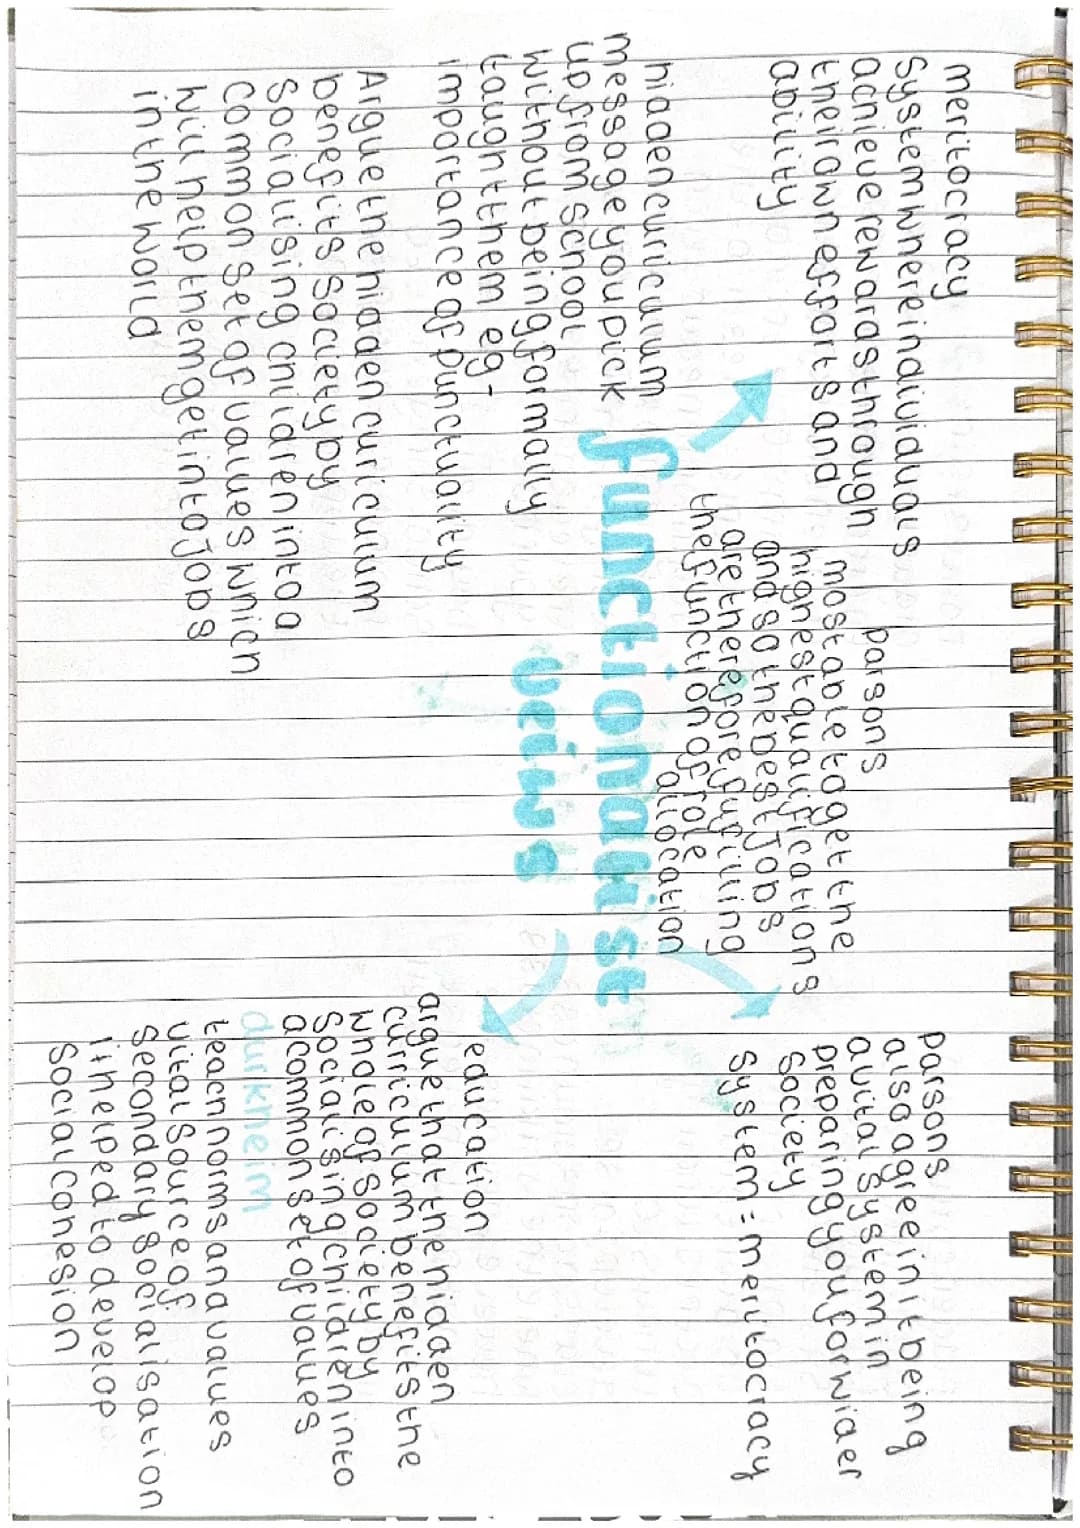 meritocracy
System where individuals
achieve rewards through
their own efforts and
ability
parsons
most able to get the
highest qualifications
and so the best Jobs
are therefore fulfilling
the function of role
allocation
parsons
also agree in it being
a vital system in
preparing you for wider
Society
System = meritocracy
functionalist
veiws
hidden curiculum
message you pick
up from School
without being formally
taught them eg-
importance of punctuality
Argue the hidden curiculum
benefits Society by
Socialising children into a
common set of values which
will help them get into Jobs
in the world
education
argue that the hidden
curriculum benefits the
whole of society by
Socialising children into
a common set of values
durkheim
teach norms and values
vital source of
Secondary socialisation
it helped to develop
Social cohesion